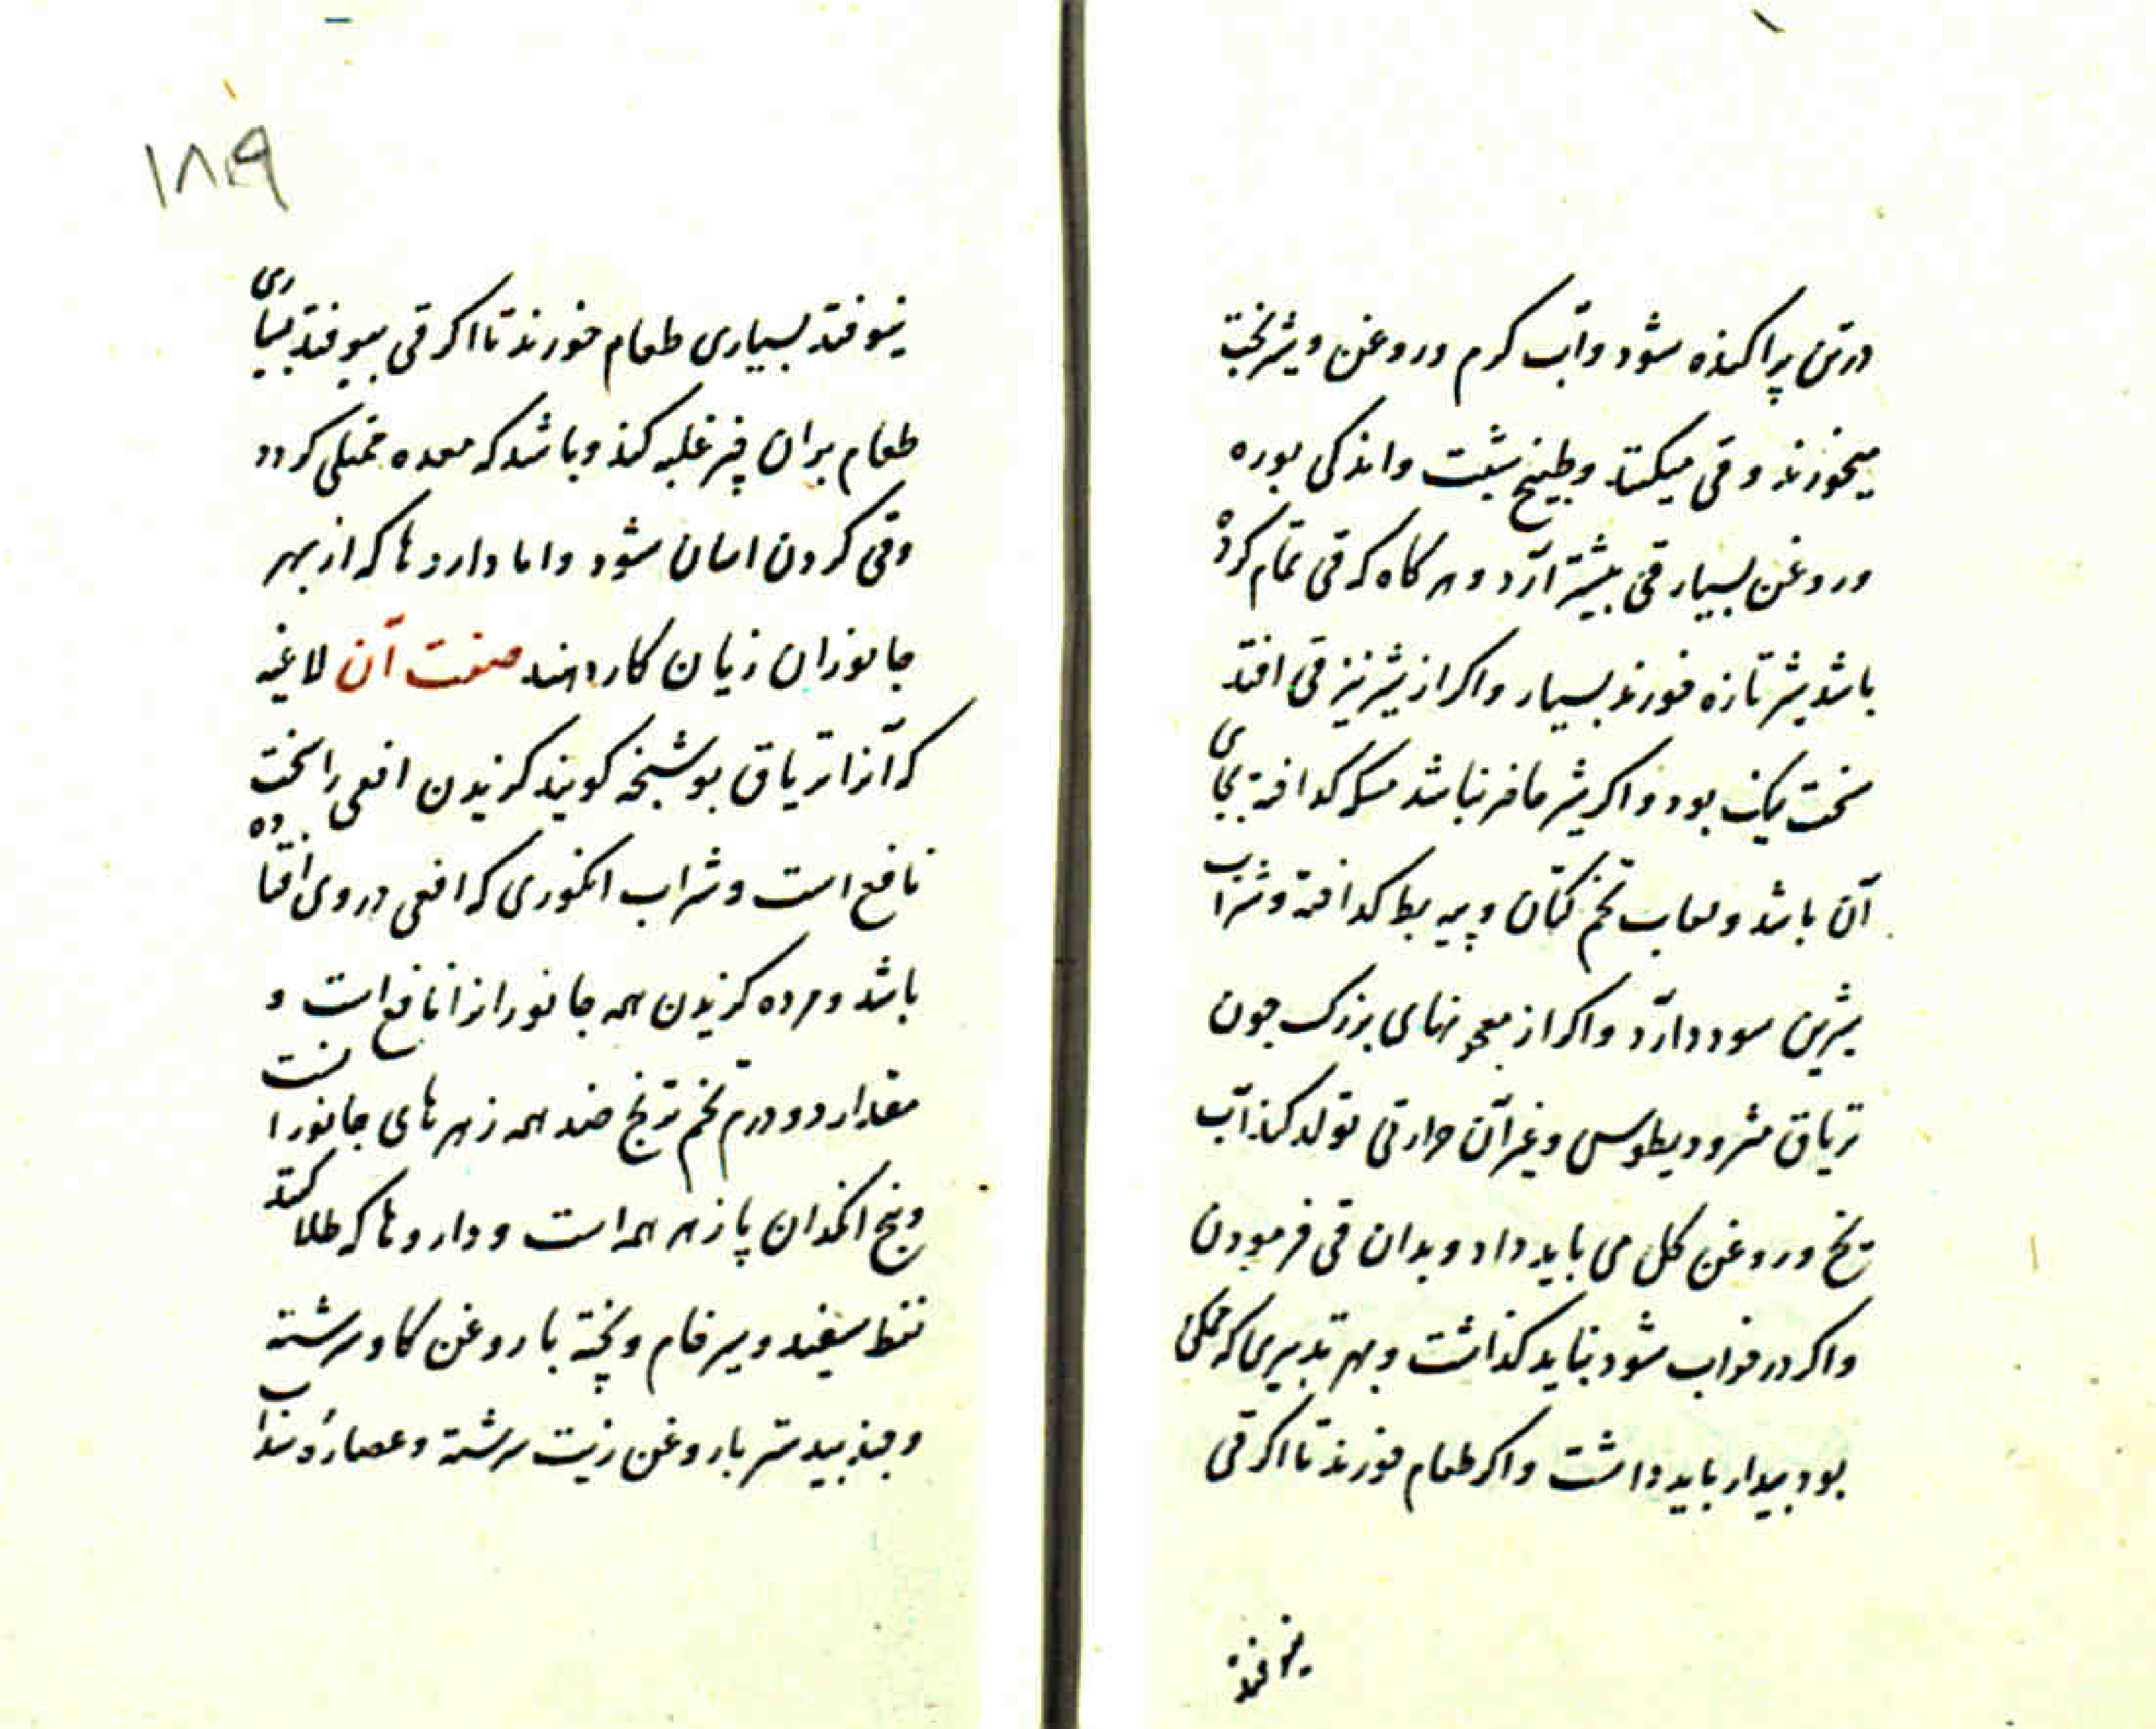 درتن پراکنده شود و آب کرم وروغن و شیرپخت
میخورند و قی میکنند و طبیخ شبت و اندکی بوره
وروغن بسیار قی بیشتر آرد و هرکاه که قی تمام کرده
باشد شیر تازه خورند بسیار و اکر از شیر نیز قی افتد
سخت نیک بود و اکر شیر حاضر نباشد مسکه کداخته بجای
آن باشد و لعاب تخم کتان و پیه بط کداخته و شراب
شیرین سود دارد و اکر از معجونهای بزرک جون
تریاق مثرودیطوس و غیر آن حرارتی تولد کند آب
یخ و روغن کل می باید داد و بدان قی فرمودن
واکر در خواب شود نباید کذاشت و بهر تدبیری که ممکن
بود بیدار باید داشت و اکر طعام خورند تا اکر قی
نیوفتد
۱۸۹
نیوفتد بسیاری طعام خورند تا اکر قی نیوفتد بسیاری
طعام بران چیز غلبه کند و باشد که معده ممتلی کردد
وقی کردن اسان شود و اما داروها که از بهر
جانوران زیان کار دهند صفت آن لاغیه
که آنرا تریاق بوشنجه کویند کزیدن افعی را سخت
نافع است و شراب انکوری که افعی در وی افتاده
باشد و مرده کزیدن همه جانورانرا نافع است و
مقدار دو درم تخم ترنج ضد همه زهرهای جانورانست
وبیخ انکدان پازهر همه است و داروها که طلا کنند
نفط سفید و سیر خام و پخته با روغن کاو سرشته
و جندبیدستر با روغن زیت سرشته و عصارۀ سداب